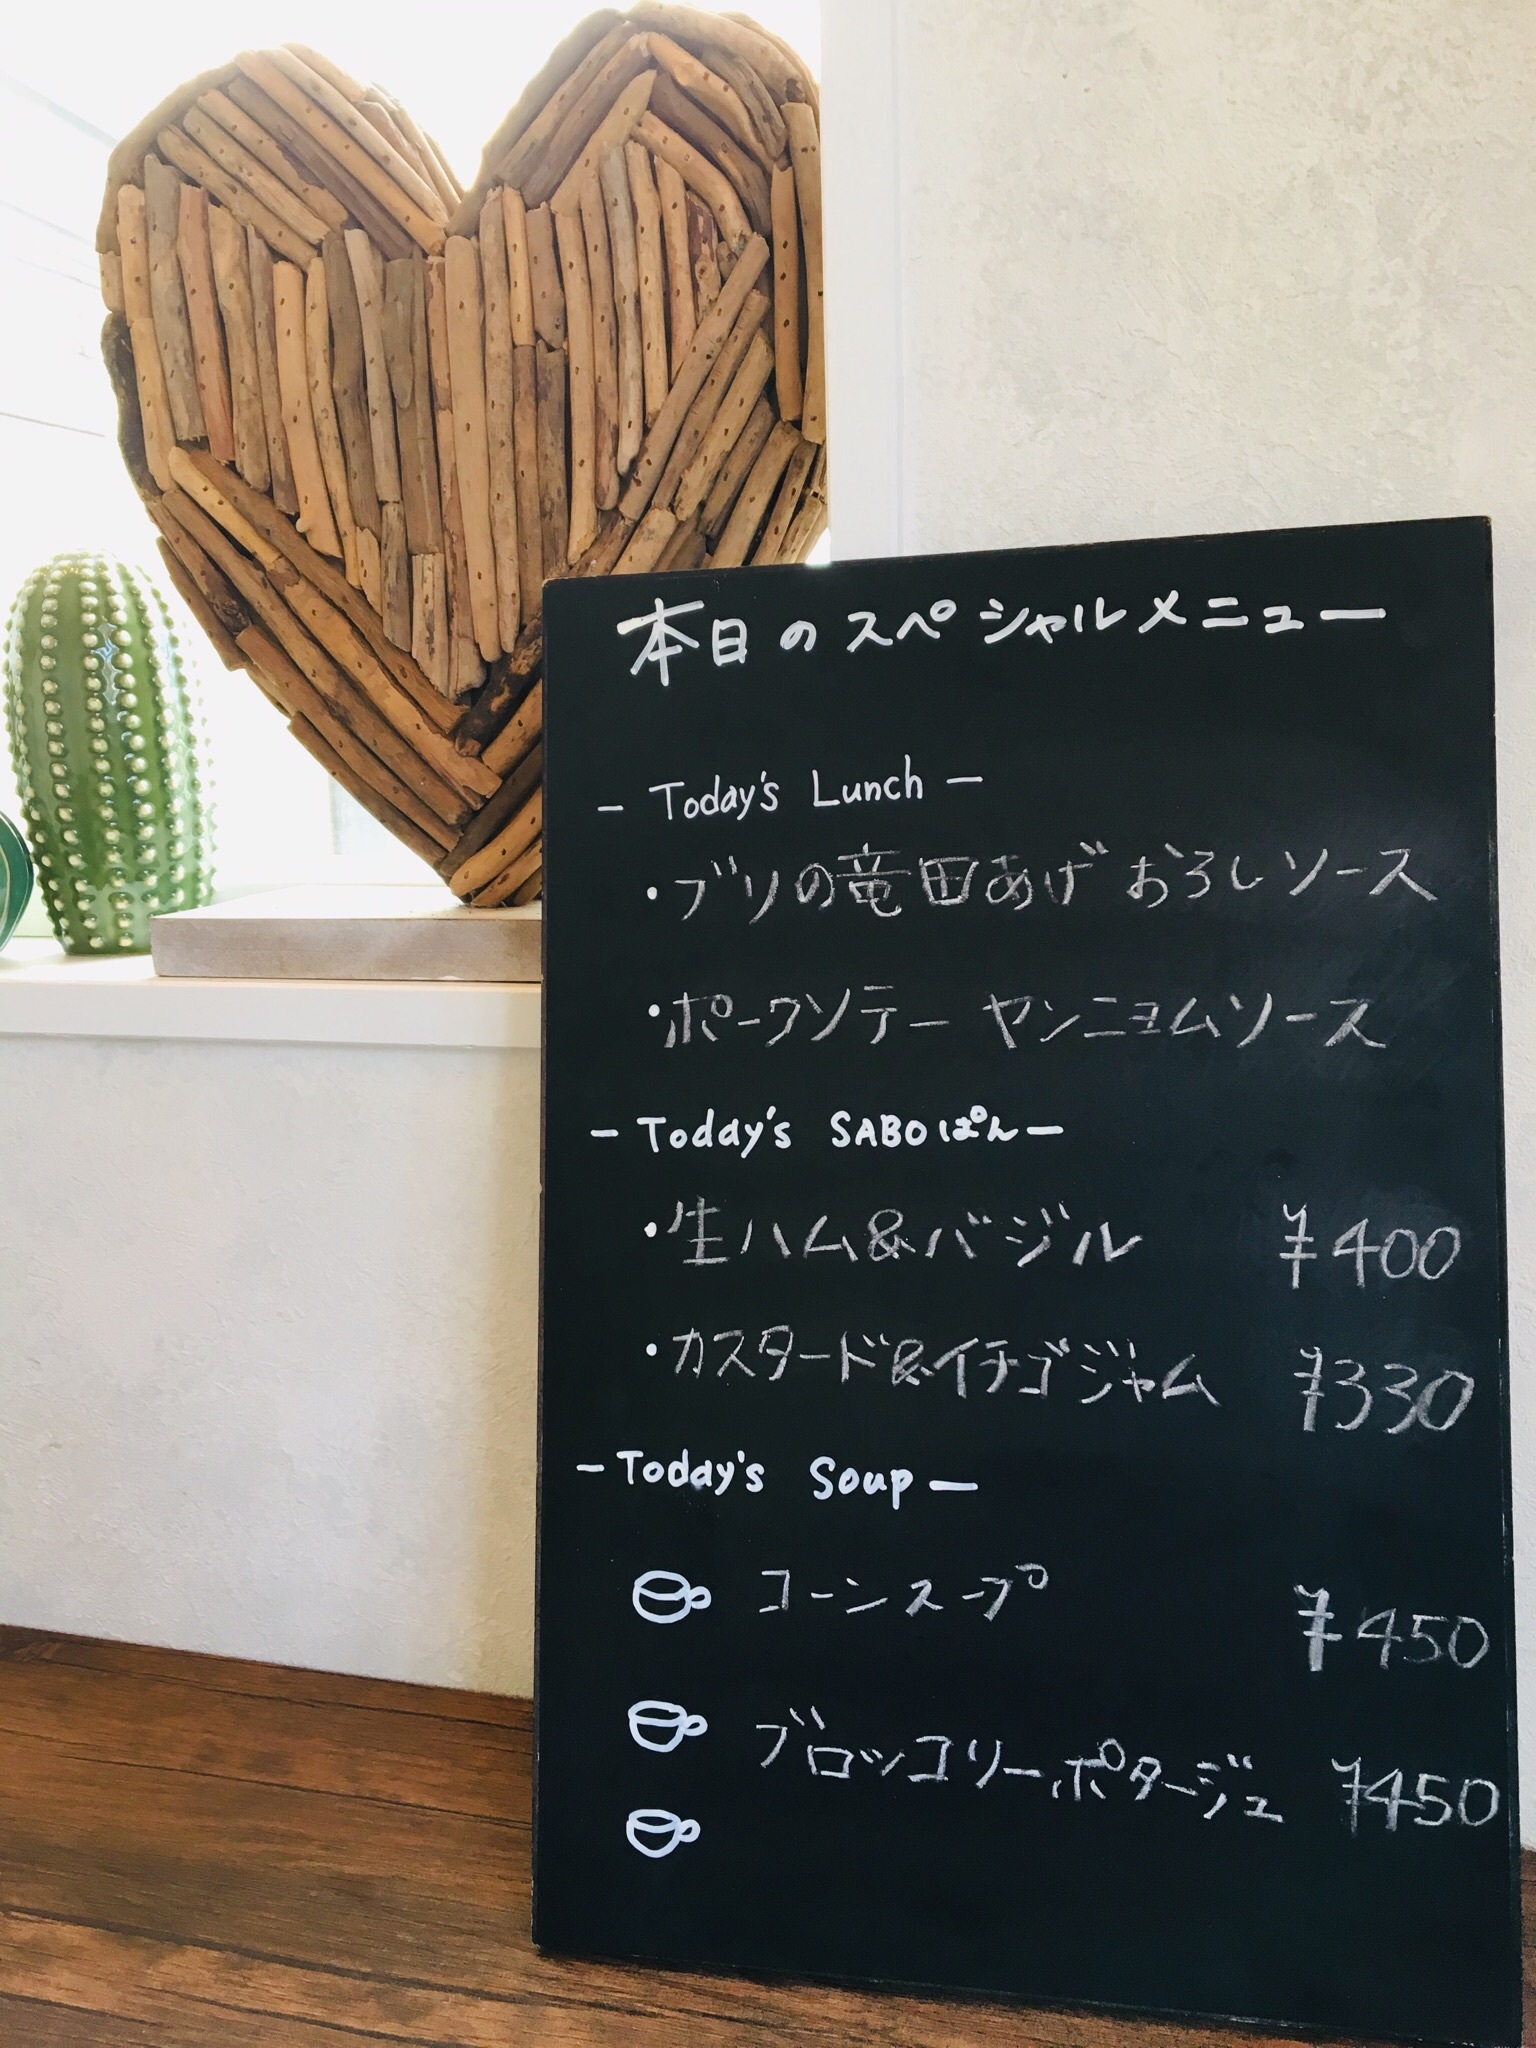 本日のスペシャルメニュー
- Today's Lunch -
・ブリの竜田あげ おろしソース
・ポークソテー ヤンニョムソース
- Today's SABOぱん -
・生ハム&バジル ¥400
・カスタード&イチゴジャム ¥330
- Today's Soup -
コーンスープ ¥450
ブロッコリーポタージュ ¥450